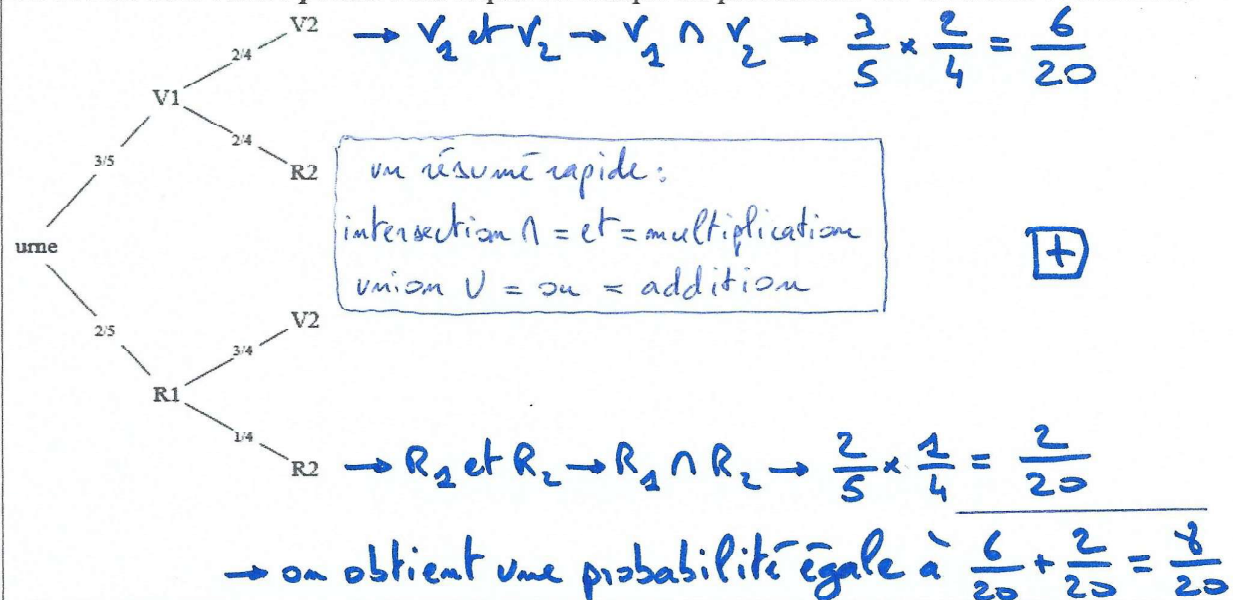 V2 → V1 et V2 → V1 ∩ V2 → 3/5 × 2/4 = 6/20
2/4
V1
2/4
3/5
R2
un résumé rapide :
intersection ∩ = et = multiplication
union U = ou = addition
urne
+
2/5
V2
3/4
R1
1/4
R2 → R1 et R2 → R1 ∩ R2 → 2/5 × 1/4 = 2/20
→ on obtient une probabilité égale à 6/20 + 2/20 = 8/20